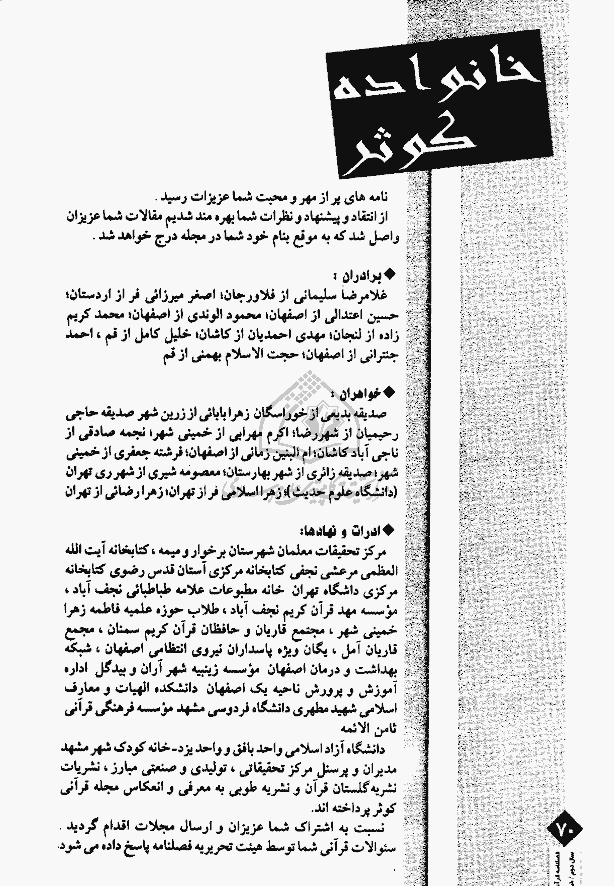 خانواده
کوثر
نامه های پر از مهر و محبت شما عزیزات رسید .
از انتقاد و پیشنهاد و نظرات شما بهره مند شدیم مقالات شما عزیزان
واصل شد که به موقع بنام خود شما در مجله درج خواهد شد .
◆برادران :
غلامرضا سلیمانی از فلاورجان؛ اصغر میرزائی فر از اردستان؛
حسین اعتدالی از اصفهان؛ محمود الوندی از اصفهان؛ محمد کریم
زاده از لنجان؛ مهدی احمدیان از کاشان؛ خلیل کامل از قم ، احمد
جنترانی از اصفهان؛ حجت الاسلام بهمنی از قم
◆خواهران :
صدیقه بدیعی از خوراسگان زهرا بابائی از زرین شهر صدیقه حاجی
رحیمیان از شهررضا؛ اکرم مهرابی از خمینی شهر؛ نجمه صادقی از
ناجی آباد کاشان؛ ام البنین زمانی از اصفهان؛ فرشته جعفری از خمینی
شهر؛ صدیقه زائری از شهر بهارستان؛ معصومه شیری از شهر ری تهران
(دانشگاه علوم حدیث)؛ زهرا اسلامی فر از تهران؛ زهرا رضائی از تهران
◆ادرات و نهادها:
مرکز تحقیقات معلمان شهرستان برخوار و میمه ، کتابخانه آیت الله
العظمی مرعشی نجفی کتابخانه مرکزی آستان قدس رضوی کتابخانه
مرکزی داشگاه تهران خانه مطبوعات علامه طباطبائی نجف آباد ،
مؤسسه مهد قرآن کریم نجف آباد ، طلاب حوزه علمیه فاطمه زهرا
خمینی شهر ، مجتمع قاریان و حافظان قرآن کریم سمنان ، مجمع
قاریان آمل ، یگان ویژه پاسداران نیروی انتظامی اصفهان ، شبکه
بهداشت و درمان اصفهان مؤسسه زینبیه شهر آران و بیدگل اداره
آموزش و پرورش ناحیه یک اصفهان دانشکده الهیات و معارف
اسلامی شهید مطهری دانشگاه فردوسی مشهد مؤسسه فرهنگی قرآنی
ثامن الائمه
دانشگاه آزاد اسلامی واحد بافق و واحد یزد-خانه کودک شهر مشهد
مدیران و پرسنل مرکز تحقیقاتی ، تولیدی و صنعتی مبارز ، نشریات
نشریه گلستان قرآن و نشریه طوبی به معرفی و انعکاس مجله قرآنی
کوثر پرداخته اند.
نسبت به اشتراک شما عزیزان و ارسال مجلات اقدام گردید .
سئوالات قرآنی شما توسط هیئت تحریریه فصلنامه پاسخ داده می شود.
.
۷۰